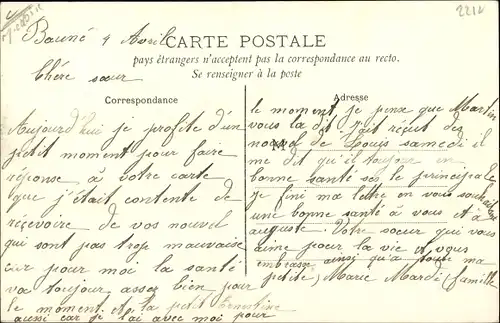 2214
Bauné 4 Avril
CARTE POSTALE
pays étrangers n'acceptent pas la correspondance au recto.
Se renseigner à la poste
Chére sœur
Correspondance
Aujourd'hui je profite d'un
petit moment pour faire
réponse à votre carte
que j'était contente de
reçevoire de vos nouvel
qui sont pas trop mauvaise
car pour moi la santé
va toujour assez bien pour
le moment. et a la petit Ernestine
aussi car je l'ai avec moi pour
Adresse
le moment je pense que Martin
vous la dit J'ait reçut des
nouvel de Louis samedi il
me dit qu'il toujour en
bonne santé ses le principale
je fini ma lettre en vous souhaitan
bonne santé à vous et à
auguste. Votre soeur qui vous
aime pour la vie et vous
embrasse ainsi qu'a toute ma
petite Marie Mardi (famille